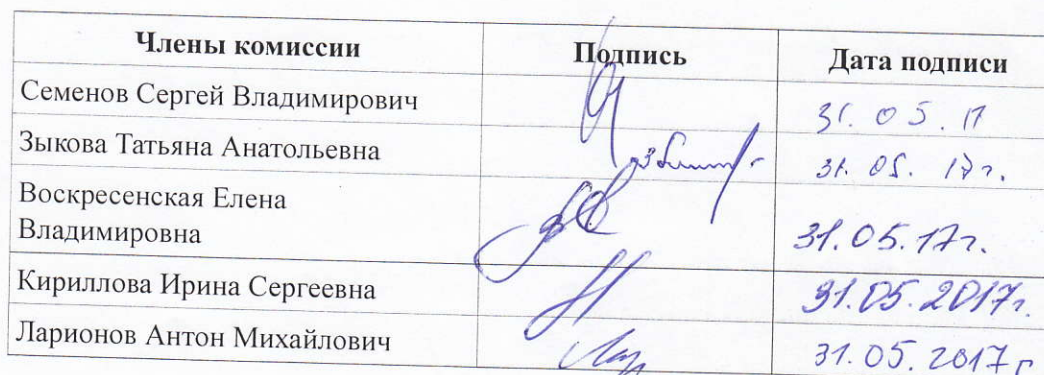 Члены комиссии Подпись Дата подписи
Семенов Сергей Владимирович 31.05.17
Зыкова Татьяна Анатольевна 31.05.17г.
Воскресенская Елена
Владимировна 31.05.17г.
Кириллова Ирина Сергеевна 31.05.2017г.
Ларионов Антон Михайлович 31.05.2017г